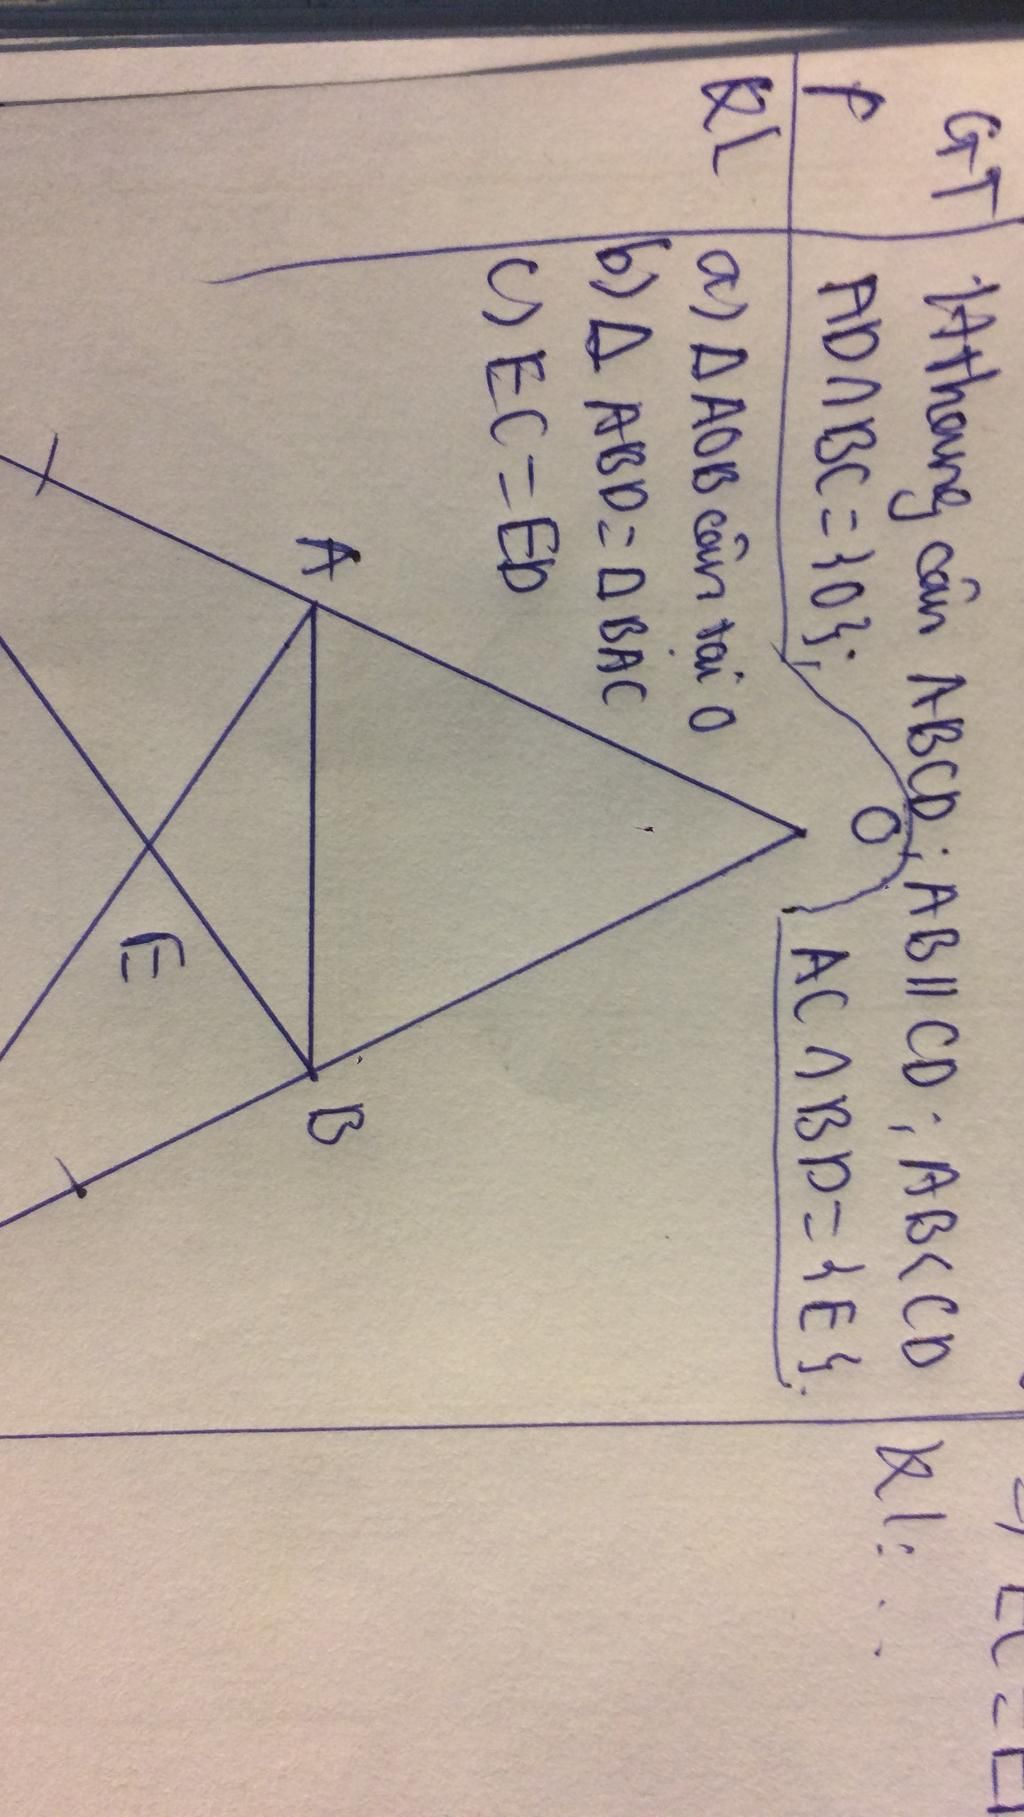 GT
Hthang cân ABCD; AB // CD; AB < CD
AD ∩ BC = {O}; AC ∩ BD = {E}.
KL
a) Δ AOB cân tại O
b) Δ ABD = Δ BAC
c) EC = ED
O
A
B
E
KL: ...
EC = E